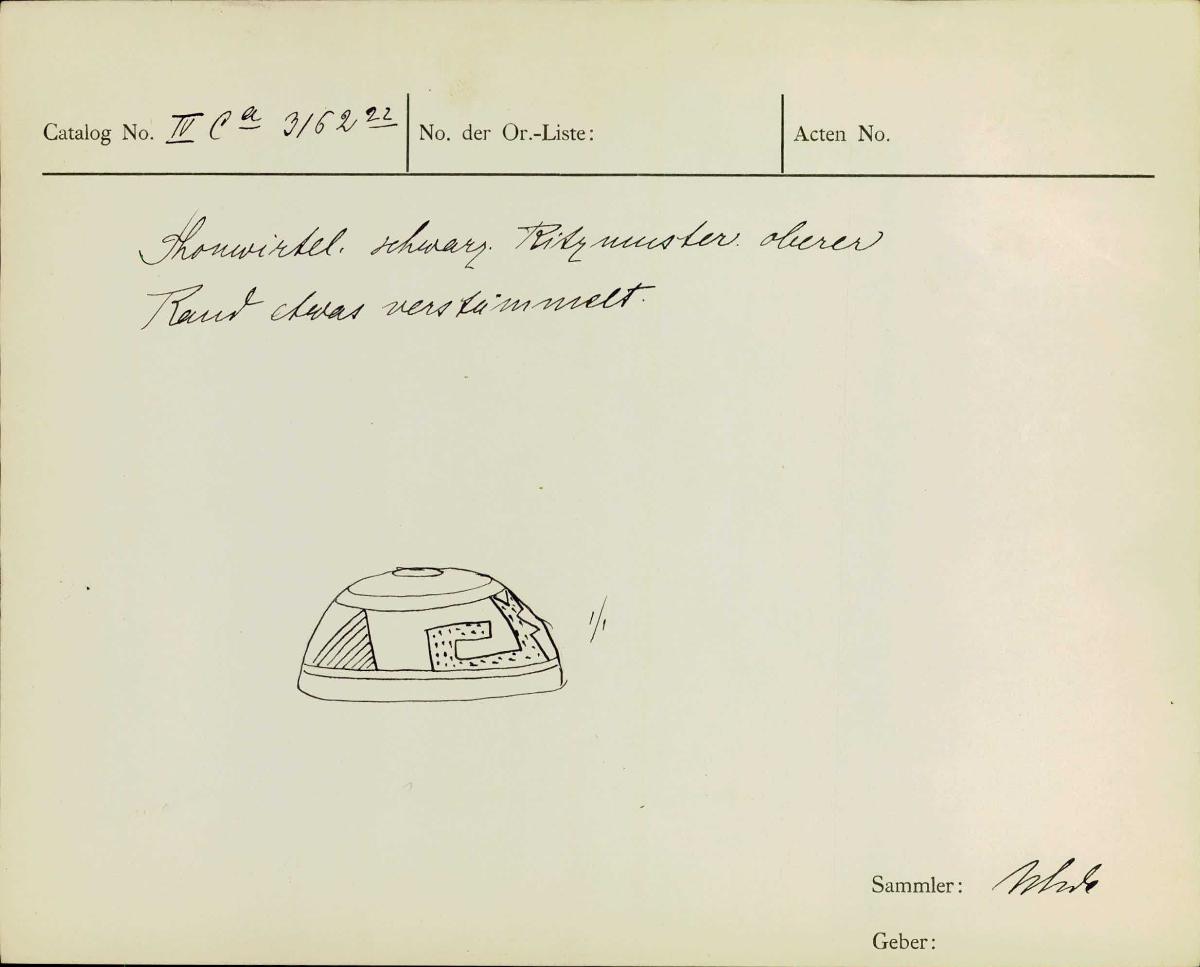 Catalog No. IV Ca 3162 22
No. der Or.-Liste:
Acten No.
Thonwirtel. schwarz. Ritzmuster. oberer
Rand etwas verstümmelt.
1/1
Sammler: Uhde
Geber: